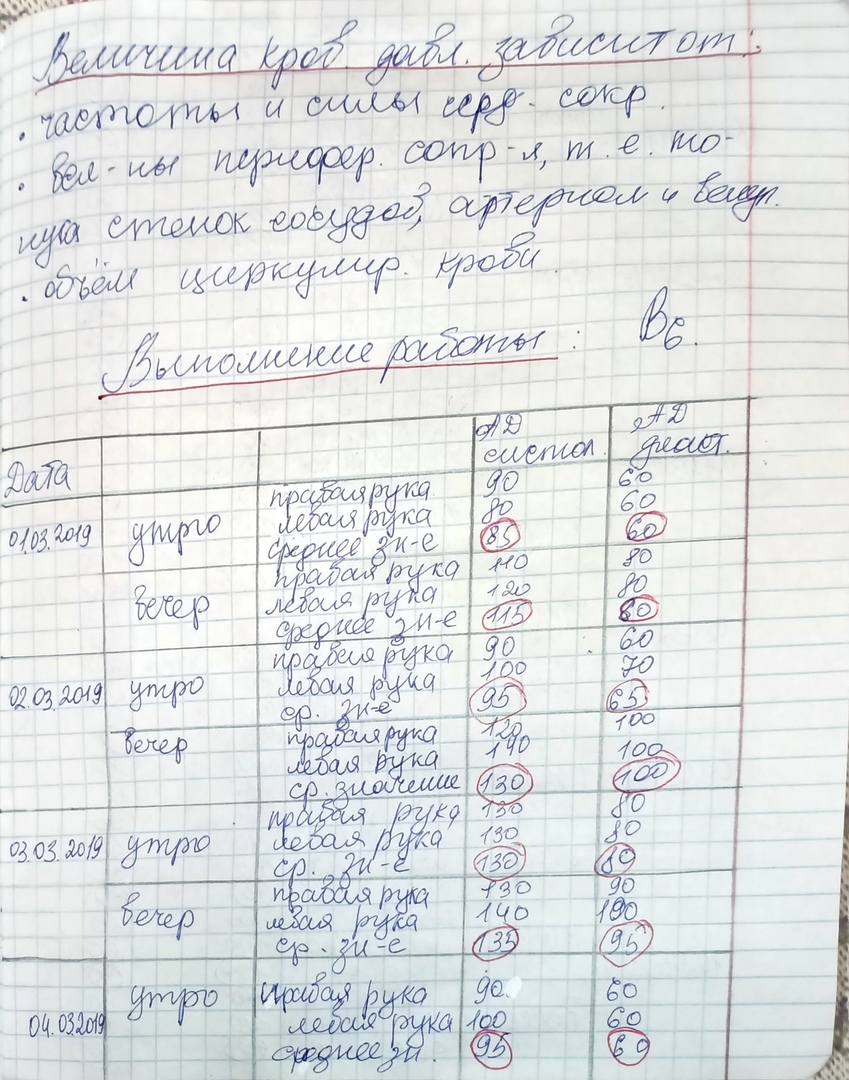 Величина кров. давл. зависит от:
• частоты и силы серд. сокр.
• вел-ны перифер. сопр-я, т. е. то-
нуса стенок сосудов, артериол и венул.
• объём циркулир. крови.
Выполнение работы: В6.
Дата АД систол. АД диаст.
правая рука 90 60
01.03.2019 утро левая рука 80 60
среднее зн-е 85 60
правая рука 110 80
вечер левая рука 120 80
среднее зн-е 115 80
правая рука 90 60
02.03.2019 утро левая рука 100 70
ср. зн-е 95 65
вечер правая рука 120 100
левая рука 140 100
ср. значение 130 100
правая рука 130 80
03.03.2019 утро левая рука 130 80
ср. зн-е 130 80
правая рука 130 90
вечер левая рука 140 100
ср. зн-е 135 95
утро правая рука 90 60
04.03.2019 левая рука 100 60
среднее зн. 95 60